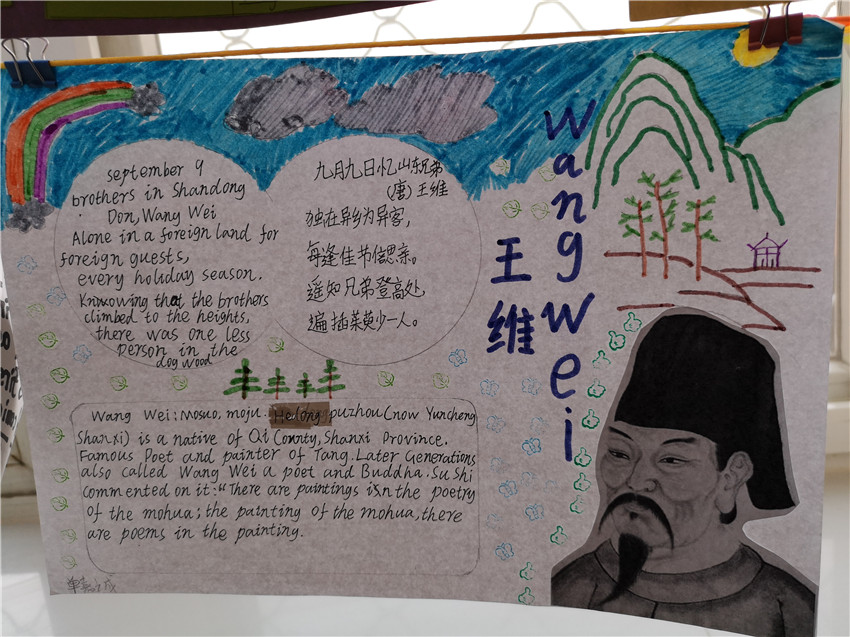 september 9
brothers in Shandong
Don, Wang Wei
Alone in a foreign land for
foreign guests,
every holiday season.
Knowowing that the brothers
climbed to the heights,
there was one less
person in the
dogwood
九月九日忆山东兄弟
(唐)王维
独在异乡为异客,
每逢佳节倍思亲。
遥知兄弟登高处,
遍插茱萸少一人。
wangwei
王维
Wang Wei: Mosuo, moju. Hedong puzhou (now Yuncheng
Shanxi) is a native of Qi County, Shanxi Province.
Famous Poet and painter of Tang. Later Generations
also called Wang Wei a poet and Buddha. Su Shi
commented on it: "There are paintings isn the poetry
of the mohua; the painting of the mohua, there
are poems in the painting.